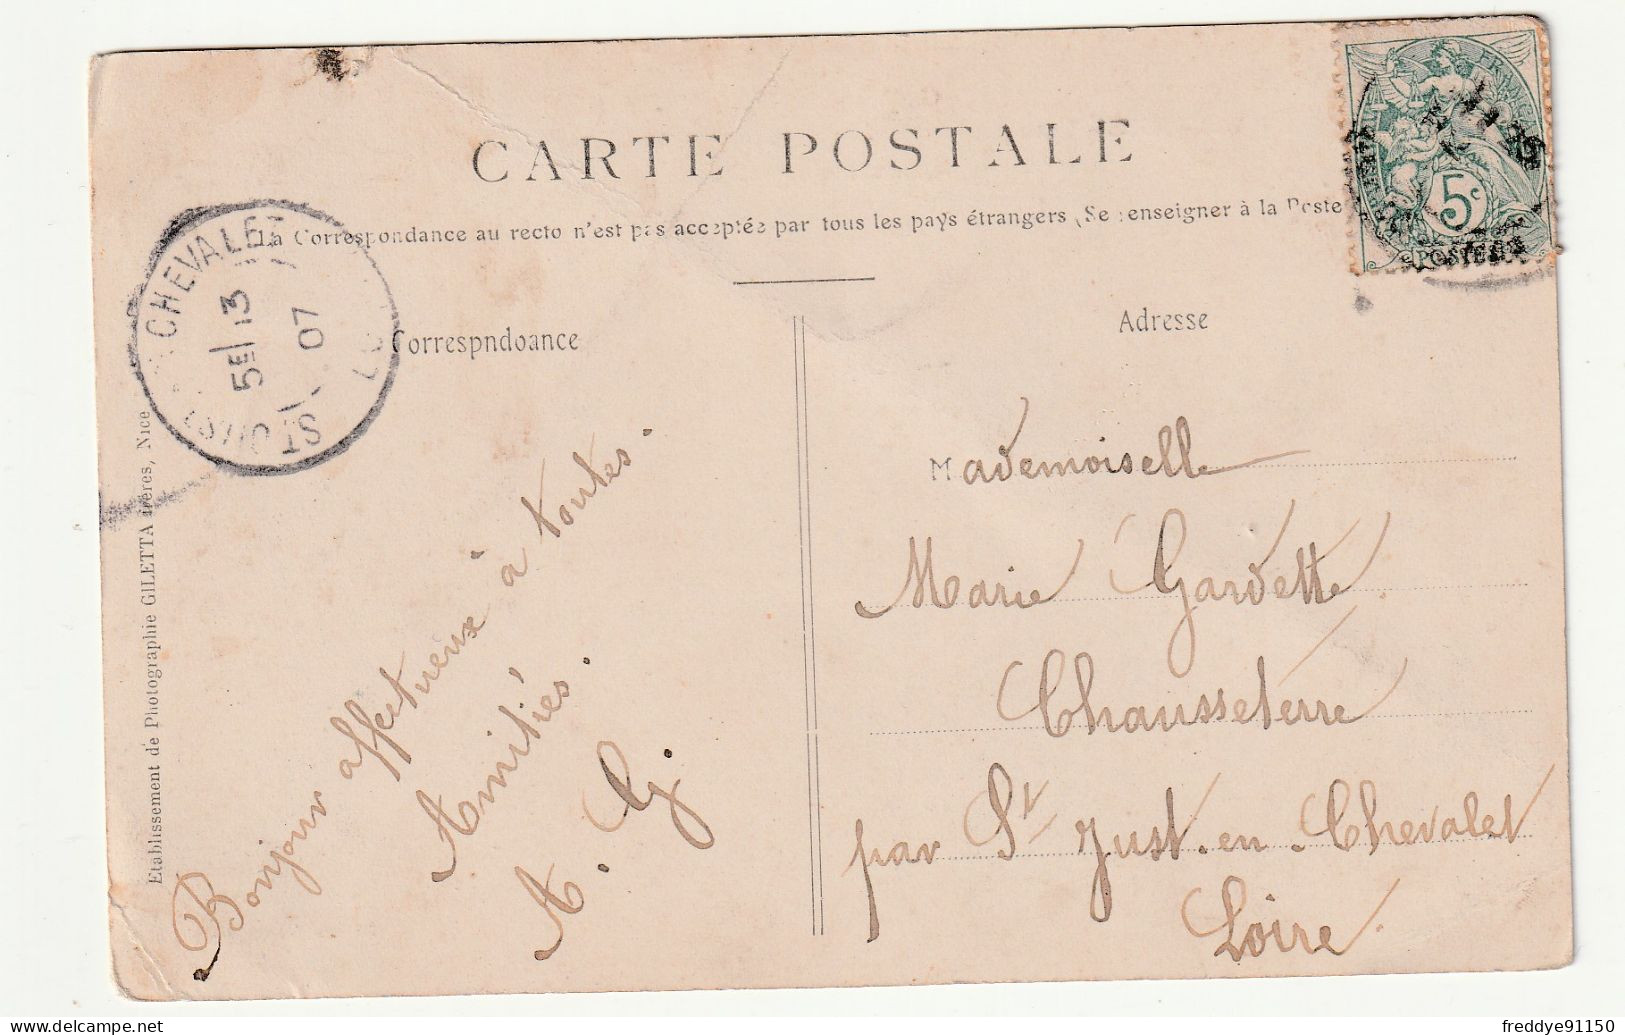 CARTE POSTALE
La Correspondance au recto n'est pas acceptée par tous les pays étrangers (Se renseigner à la Poste
Correspndoance
Adresse
CHEVALET
13
07
ST JUST
FRANÇ
5c
POSTES
Bonjour affectueux à toutes.
Amitiés.
A. G.
Mademoiselle
Marie Gardette
Chausseterre
par St Just-en-Chevalet
Loire.
Etablissement de Photographie GILETTA frères, Nice
freddye91150